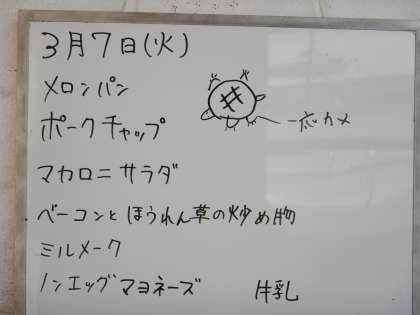 3月7日(火)
メロンパン
ポークチャップ
一応カメ
マカロニサラダ
ベーコンとほうれん草の炒め物
ミルメーク
ノンエッグマヨネーズ 牛乳